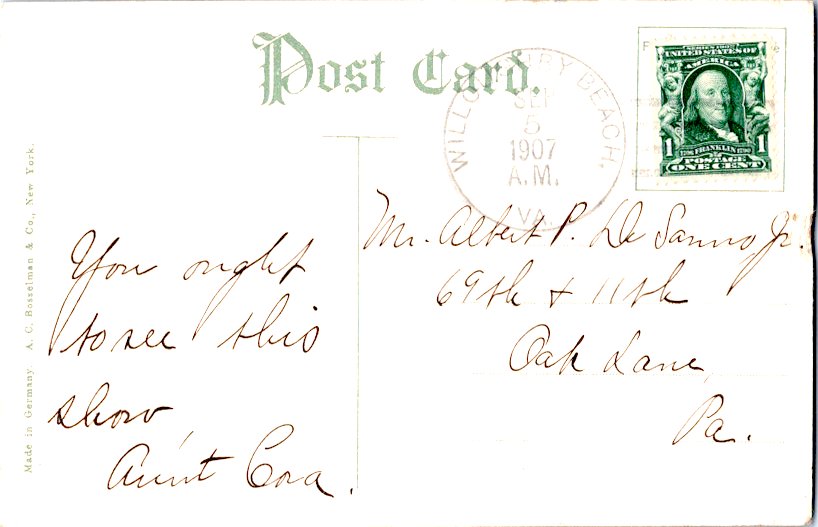 Post Card.
WILLOUGHBY BEACH,
SEP
5
1907
A.M.
VA.
SERIES 1902
UNITED STATES OF
AMERICA
1706 FRANKLIN 1790
1 POSTAGE 1
ONE CENT
Mr. Albert P. De Sanno, Jr.
69th & 11th
Oak Lane,
Pa.
You ought
to see this
show,
Aunt Cora.
Made in Germany. A. C. Bosselman & Co., New York.